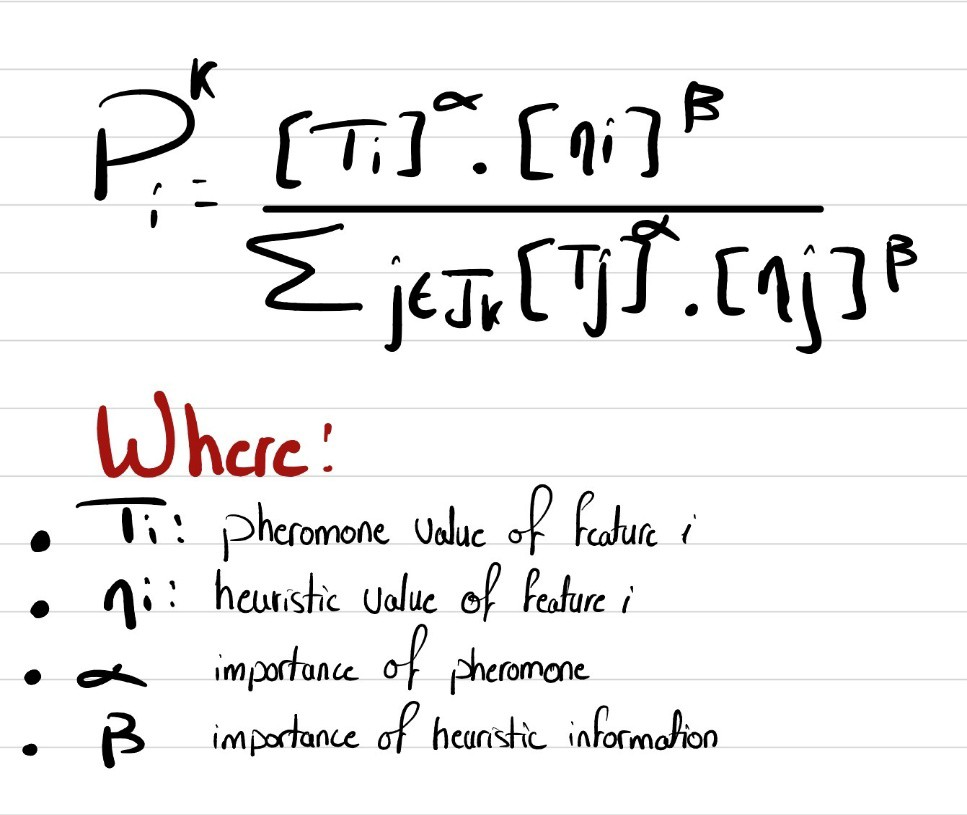 P_i^k = [τi]^α · [ηi]^β
∑ j∈Jk [τj]^α · [ηj]^β
Where:
• τi: pheromone value of feature i
• ηi: heuristic value of feature i
• α importance of pheromone
• β importance of heuristic information